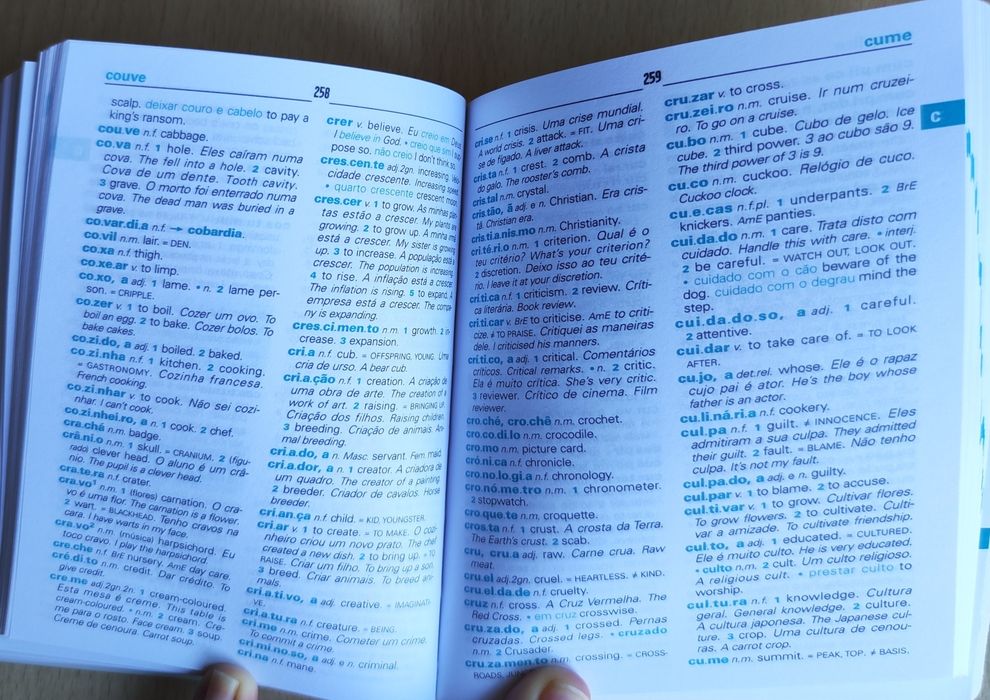 couve
258
scalp. deixar couro e cabelo to pay a
king's ransom.
cou.ve n.f. cabbage.
co.va n.f. 1 hole. Eles caíram numa
cova. The fell into a hole. 2 cavity.
Cova de um dente. Tooth cavity.
3 grave. O morto foi enterrado numa
cova. The dead man was buried in a
grave.
co.var.di.a n.f. → cobardia.
co.vil n.m. lair. = DEN.
co.xa n.f. thigh.
co.xe.ar v. to limp.
co.xo, a adj. 1 lame. • n. 2 lame per-
son. = CRIPPLE.
co.zer v. 1 to boil. Cozer um ovo. To
boil an egg. 2 to bake. Cozer bolos. To
bake cakes.
co.zi.do, a adj. 1 boiled. 2 baked.
co.zi.nha n.f. 1 kitchen. 2 cooking.
= GASTRONOMY. Cozinha francesa.
French cooking.
co.zi.nhar v. to cook. Não sei cozi-
nhar. I can't cook.
co.zi.nhei.ro, a n. 1 cook. 2 chef.
cra.chá n.m. badge.
crâ.ni.o n.m. 1 skull. = CRANIUM. 2 (figu-
rado) clever head. O aluno é um crâ-
nio. The pupil is a clever head.
cra.te.ra n.f. crater.
cra.vo¹ n.m. 1 (flores) carnation. O cra-
vo é uma flor. The carnation is a flower.
2 wart. = BLACKHEAD. Tenho cravos na
cara. I have warts in my face.
cra.vo² n.m. (música) harpsichord. Eu
toco cravo. I play the harpsichord.
cre.che n.f. BrE nursery. AmE day care.
cré.di.to n.m. credit. Dar crédito. To
give credit.
cre.me adj.2gn.2n. 1 cream-coloured.
Esta mesa é creme. This table is
cream-coloured. • n.m. 2 cream. Cre-
me para o rosto. Face cream. 3 soup.
Creme de cenoura. Carrot soup.
crer v. believe. Eu creio em Deus.
I believe in God. • creio que sim I sup-
pose so. não creio I don't think so.
cres.cen.te adj.2gn. increasing. Velo-
cidade crescente. Increasing speed.
• quarto crescente crescent moon.
cres.cer v. 1 to grow. As minhas plan-
tas estão a crescer. My plants are
growing. 2 to grow up. A minha irmã
está a crescer. My sister is growing
up. 3 to increase. A população está a
crescer. The population is increasing.
4 to rise. A inflação está a crescer.
The inflation is rising. 5 to expand. A
empresa está a crescer. The compa-
ny is expanding.
cres.ci.men.to n.m. 1 growth. 2 in-
crease. 3 expansion.
cri.a n.f. cub. = OFFSPRING, YOUNG. Uma
cria de urso. A bear cub.
cri.a.ção n.f. 1 creation. A criação de
uma obra de arte. The creation of a
work of art. 2 raising. = BRINGING UP.
Criação dos filhos. Raising children.
3 breeding. Criação de animais. Ani-
mal breeding.
cri.a.do, a n. Masc. servant. Fem. maid.
cri.a.dor, a n. 1 creator. A criadora de
um quadro. The creator of a painting.
2 breeder. Criador de cavalos. Horse
breeder.
cri.an.ça n.f. child. = KID, YOUNGSTER.
cri.ar v. 1 to create. = TO MAKE. O cozi-
nheiro criou um novo prato. The chef
created a new dish. 2 to bring up. = TO
RAISE. Criar um filho. To bring up a son.
3 breed. Criar animais. To breed ani-
mals.
cri.a.ti.vo, a adj. creative. = IMAGINATI-
VE.
cri.a.tu.ra n.f. creature. = BEING.
cri.me n.m. crime. Cometer um crime.
To commit a crime.
cri.mi.no.so, a adj. e n. criminal.
cri.na n.f. mane.
259
cume
cri.se n.f. 1 crisis. Uma crise mundial.
A world crisis. 2 attack. = FIT. Uma cri-
se de fígado. A liver attack.
cris.ta n.f. 1 crest. 2 comb. A crista
do galo. The rooster's comb.
cris.tal n.m. crystal.
cris.tão, ã adj. e n. Christian. Era cris-
tã. Christian era.
cris.ti.a.nis.mo n.m. Christianity.
cri.té.ri.o n.m. 1 criterion. Qual é o
teu critério? What's your criterion?
2 discretion. Deixo isso ao teu crité-
rio. I leave it at your discretion.
crí.ti.ca n.f. 1 criticism. 2 review. Críti-
ca literária. Book review.
cri.ti.car v. BrE to criticise. AmE to criti-
cize. ≠ TO PRAISE. Critiquei as maneiras
dele. I criticised his manners.
crí.ti.co, a adj. 1 critical. Comentários
críticos. Critical remarks. • n. 2 critic.
Ela é muito crítica. She's very critic.
3 reviewer. Crítico de cinema. Film
reviewer.
cro.ché, cro.chê n.m. crochet.
cro.co.di.lo n.m. crocodile.
cro.mo n.m. picture card.
cró.ni.ca n.f. chronicle.
cro.no.lo.gi.a n.f. chronology.
cro.nó.me.tro n.m. 1 chronometer.
2 stopwatch.
cro.que.te n.m. croquette.
cros.ta n.f. 1 crust. A crosta da Terra.
The Earth's crust. 2 scab.
cru, cru.a adj. raw. Carne crua. Raw
meat.
cru.el adj.2gn. cruel. = HEARTLESS. ≠ KIND.
cru.el.da.de n.f. cruelty.
cruz n.f. cross. A Cruz Vermelha. The
Red Cross. • em cruz crosswise.
cru.za.do, a adj. 1 crossed. Pernas
cruzadas. Crossed legs. • cruzado
n.m. 2 Crusader.
cru.za.men.to n.m. crossing. = CROSS-
ROADS,
cru.zar v. to cross.
cru.zei.ro n.m. cruise. Ir num cruzei-
ro. To go on a cruise.
cu.bo n.m. 1 cube. Cubo de gelo. Ice
cube. 2 third power. 3 ao cubo são 9.
The third power of 3 is 9.
cu.co n.m. cuckoo. Relógio de cuco.
Cuckoo clock.
cu.e.cas n.f.pl. 1 underpants. 2 BrE
knickers. AmE panties.
cui.da.do n.m. 1 care. Trata disto com
cuidado. Handle this with care. • interj.
2 be careful. = WATCH OUT, LOOK OUT.
• cuidado com o cão beware of the
dog. cuidado com o degrau mind the
step.
cui.da.do.so, a adj. 1 careful.
2 attentive.
cui.dar v. to take care of. = TO LOOK
AFTER.
cu.jo, a det.rel. whose. Ele é o rapaz
cujo pai é ator. He's the boy whose
father is an actor.
cu.li.ná.ri.a n.f. cookery.
cul.pa n.f. 1 guilt. ≠ INNOCENCE. Eles
admitiram a sua culpa. They admitted
their guilt. 2 fault. = BLAME. Não tenho
culpa. It's not my fault.
cul.pa.do, a adj. e n. guilty.
cul.par v. 1 to blame. 2 to accuse.
cul.ti.var v. 1 to grow. Cultivar flores.
To grow flowers. 2 to cultivate. Culti-
var a amizade. To cultivate friendship.
cul.to, a adj. 1 educated. = CULTURED.
Ele é muito culto. He is very educated.
• culto n.m. 2 cult. Um culto religioso.
A religious cult. • prestar culto to
worship.
cul.tu.ra n.f. 1 knowledge. Cultura
geral. General knowledge. 2 culture.
A cultura japonesa. The Japanese cul-
ture. 3 crop. Uma cultura de cenou-
ras. A carrot crop.
cu.me n.m. summit. = PEAK, TOP. ≠ BASIS.
C